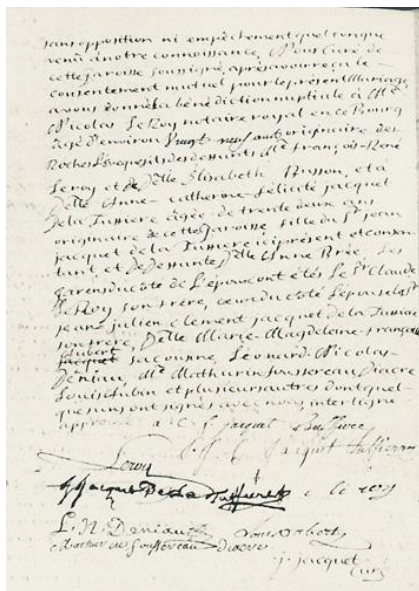 sans opposition ni empechement quelconque
venu à notre connoissance, Nous Curé de
cette paroisse soussigné, apres avoir reçu le
consentement mutuel pour le présent Mariage
avons donné la bénédiction nuptiale à Me
Nicolas LeRoy notaire royal en ce Bourg
agé d'environ Vingt neuf ans originaire des
Roches L'Eveque fils des deffunts Me françois-René
Leroy et de Delle Elisabeth Busson, et à
Delle Anne-Catherine-félicité jacquet
De la Tussiere agée de trente deux ans
originaire de cette paroisse fille du Sr jean
jacquet de la Tussiere ici présent et consen
tant, et de Deffunte Delle Anne Brée. Les
garens du coté de l'époux ont étés le Sr Claude
LeRoy son frère, ceux du coté l'épouse le Sr
jean julien clement jacquet de la Tussiere
son frère, Delle Marie-Magdeleine-françoise
jacquet sa cousine, Léonard-Nicolas
Déniau, Me Mathurin Foussereau Diacre
Louis Aubert et plusieurs autres dont quel-
ques uns ont signés avec nous, interligne
approuvé a. C. f. jacquet Tussiere
jacquet Tussiere
Leroy
jjacquet De La Tussiere c le roy
L. N. Deniau Louis aubert
Mathurin foussereau Diacre
j. jacquet
Curé